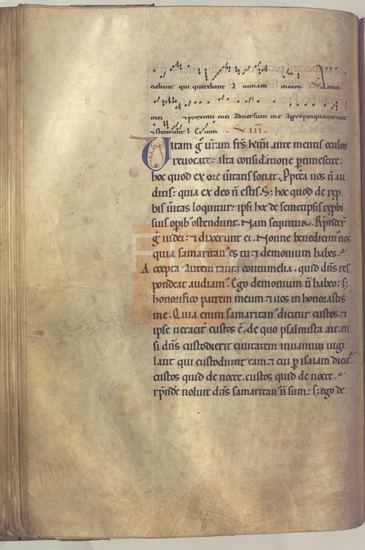 ciebant qui querebant animam meam Amici
mei & proximi mei Adversum me Appropinquaverunt
& steterunt
Vitam g̃ vr̃am frs̃ km̃i ante mentis oculos
revocate: alta consideratione permescete.
hoc quod ex ore veritatis sonat. Propterea vos n̄ au-
ditis: quia ex deo n̄ estis. S; hoc quod de
bis veritas loquitur: ipsi hoc de semetipsis
suis operib' ostendunt. Nam sequitur.
g̃ iudei: & dixerunt ei. Nonne benedicim' nos
quia samaritan' es tu & demonium habes.
Accepta autem tanta contumelia. quid dñs res-
pondeat audiam'. Ego demonium n̄ habeo: s;
honorifico patrem meum & vos inhonorastis
me. Quia enim samaritan' dicitur custos &
ipse veracit' custos ē. de quo psalmista ait. ni-
si dñs custodierit civitatem invanum vigi-
lant qui custodiunt eam & cui p̄ isaiam dicit'.
custos quid de nocte. custos quid de nocte.
noluit dñs samaritan' n̄ sum: s; ego de-